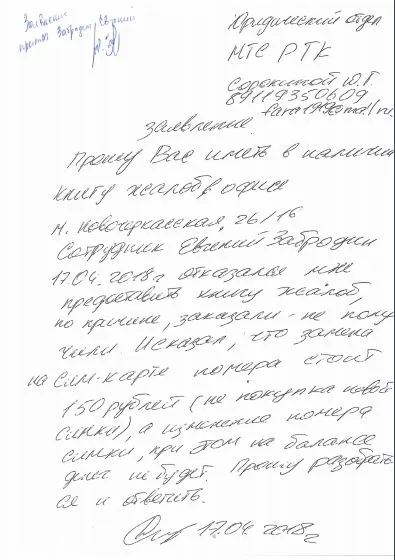 Заявление
принял Забродин Евгений
Юридический отдел
МТС РТК
Сорокиной Ю.Г.
89119350609
заявление
Прошу Вас иметь в наличии
книгу жалоб в офисе
м. Новочеркасская, 26/16
Сотрудник Евгений Забродин
17.04.2018г отказался мне
предоставить книгу жалоб,
по причине, заказали - не полу
чили. И сказал, что замена
на сим-карте номера стоит
150 рублей (не покупка новой
симки), а изменение номера
симки, при этом на балансе
денег не будет. Прошу разобрать
ся и ответить.
17.04.2018г